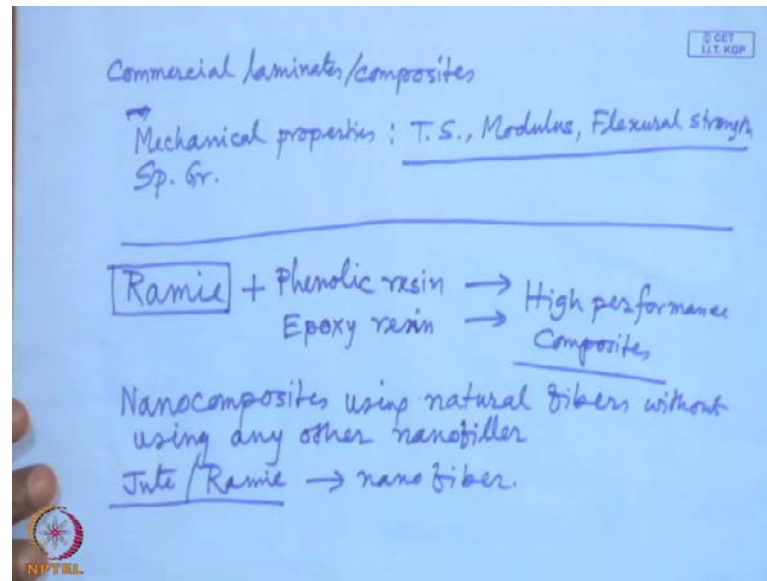 © CET
I.I.T. KGP
Commercial laminates/composites
Mechanical properties : T.S., Modulus, Flexural strength
Sp. Gr.
Ramie + Phenolic resin → High performance
Epoxy resin → Composites
Nanocomposites using natural fibers without
using any other nanofiller
Jute / Ramie → nano fiber.
NPTEL